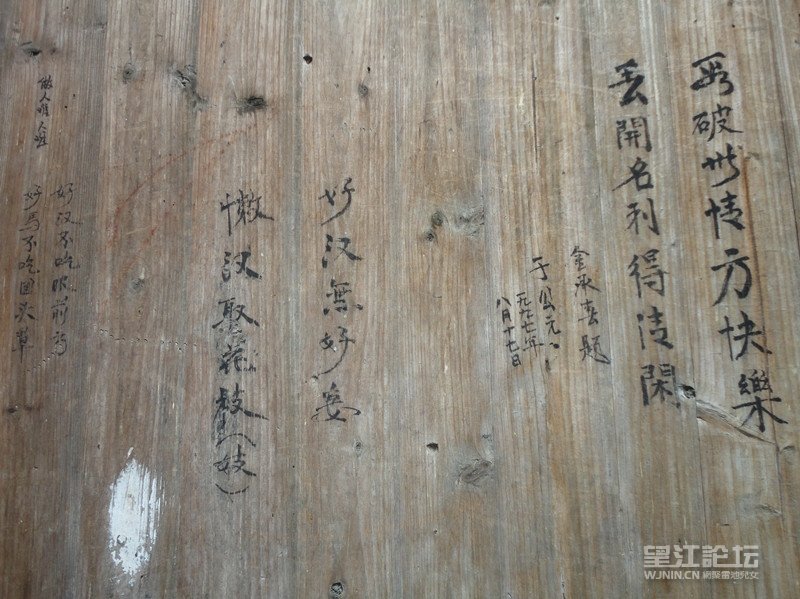 看破世情方快樂
丢開名利得清閑
金承春題
于公元
一九九七年
八月十七日
好汉無好妻
懒汉娶花枝(妓)
好汉不吃眼前亏
好马不吃回头草
做人难人难
望江論坛
WJNIN.CN 網聚雷池兒女